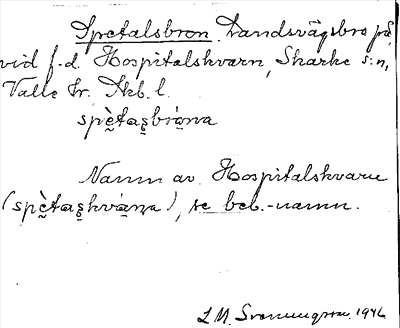 Spetalsbron. Landsvägsbro på
vid f.d. Hospitalskvarn, Skarke s:n,
Valle hr. Skb. l.
spè̱tas̱brána
Namn av Hospitalskvarn
(spè̱tas̱kvána), se beb.-namn.
1946